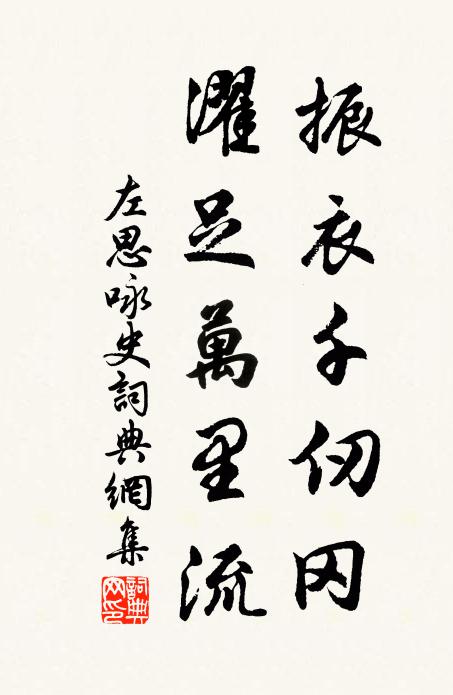 振衣千仞冈
濯足萬里流
左思咏史詞典網集
詞典
网印